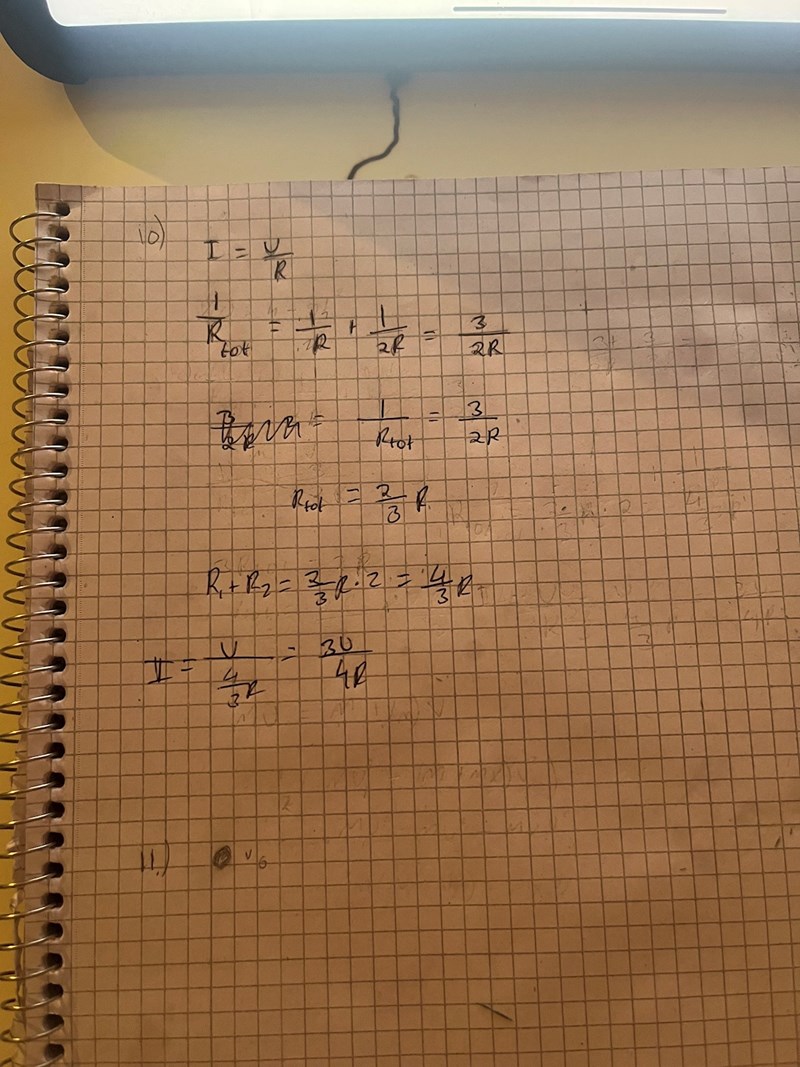 10) I = U/R
1/R_tot = 1/R + 1/2R = 3/2R
= 1/R_tot = 3/2R
R_tot = 2/3 R
R₁+R₂ = 2/3 R · 2 = 4/3 R
I = U/(4/3 R) = 3U/4R
11.)